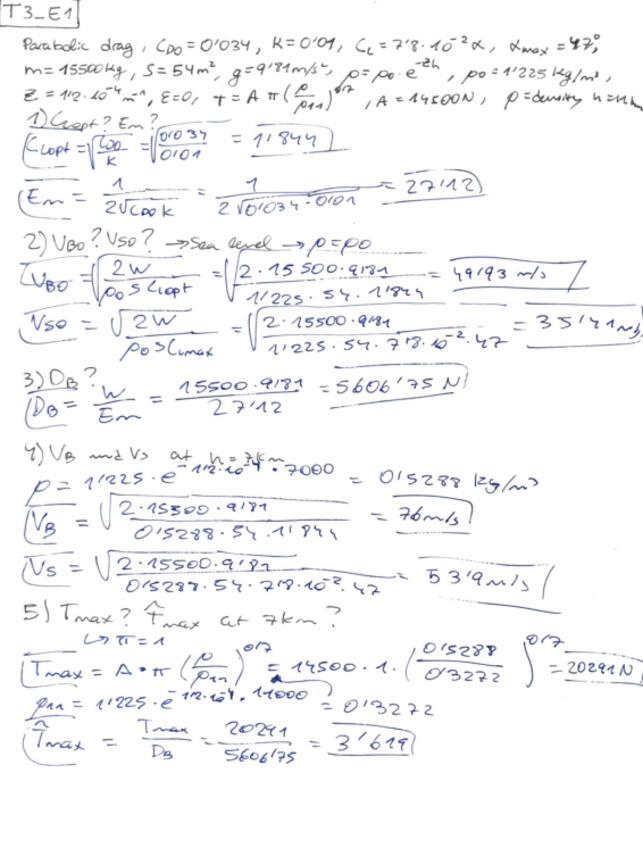 T3_E1
Parabolic drag, C_D0 = 0'034, K = 0'01, C_L = 7'8·10^-2 α, α_max = 47°,
m = 15500kg, S = 54m², g = 9'81m/s², ρ = ρ0·e^-zh, ρ0 = 1'225 kg/m³,
z = 1'2·10^-4 m^-1, ε=0, T = A π (ρ/ρ11)^0'7, A = 14500N, ρ=density
1) C_Lopt? Em?
C_Lopt = √(C_D0/K) = √(0'034/0'01) = 1'844
Em = 1/(2√(C_D0 K)) = 1/(2√(0'034·0'01)) = 27'12
2) V_B0? V_S0? → Sea level → ρ=ρ0
V_B0 = √(2W/(ρ0 S C_Lopt)) = √(2·15500·9'81/(1'225·54·1'844)) = 49'93 m/s
V_S0 = √(2W/(ρ0 S C_Lmax)) = √(2·15500·9'81/(1'225·54·7'8·10^-2·47)) = 35'41 m/s
3) D_B?
D_B = W/Em = 15500·9'81/27'12 = 5606'75 N
4) V_B and V_S at h = 7km
ρ = 1'225·e^(-1'2·10^-4·7000) = 0'5288 kg/m³
V_B = √(2·15500·9'81/(0'5288·54·1'844)) = 76m/s
V_S = √(2·15500·9'81/(0'5288·54·7'8·10^-2·47)) = 53'9m/s
5) Tmax? T̂max at 7km?
↳ π=1
Tmax = A·π (ρ/ρ11)^0'7 = 14500·1·(0'5288/0'3272)^0'7 = 20291N
ρ11 = 1'225·e^(-1'2·10^-4·11000) = 0'3272
T̂max = Tmax/D_B = 20291/5606'75 = 3'619